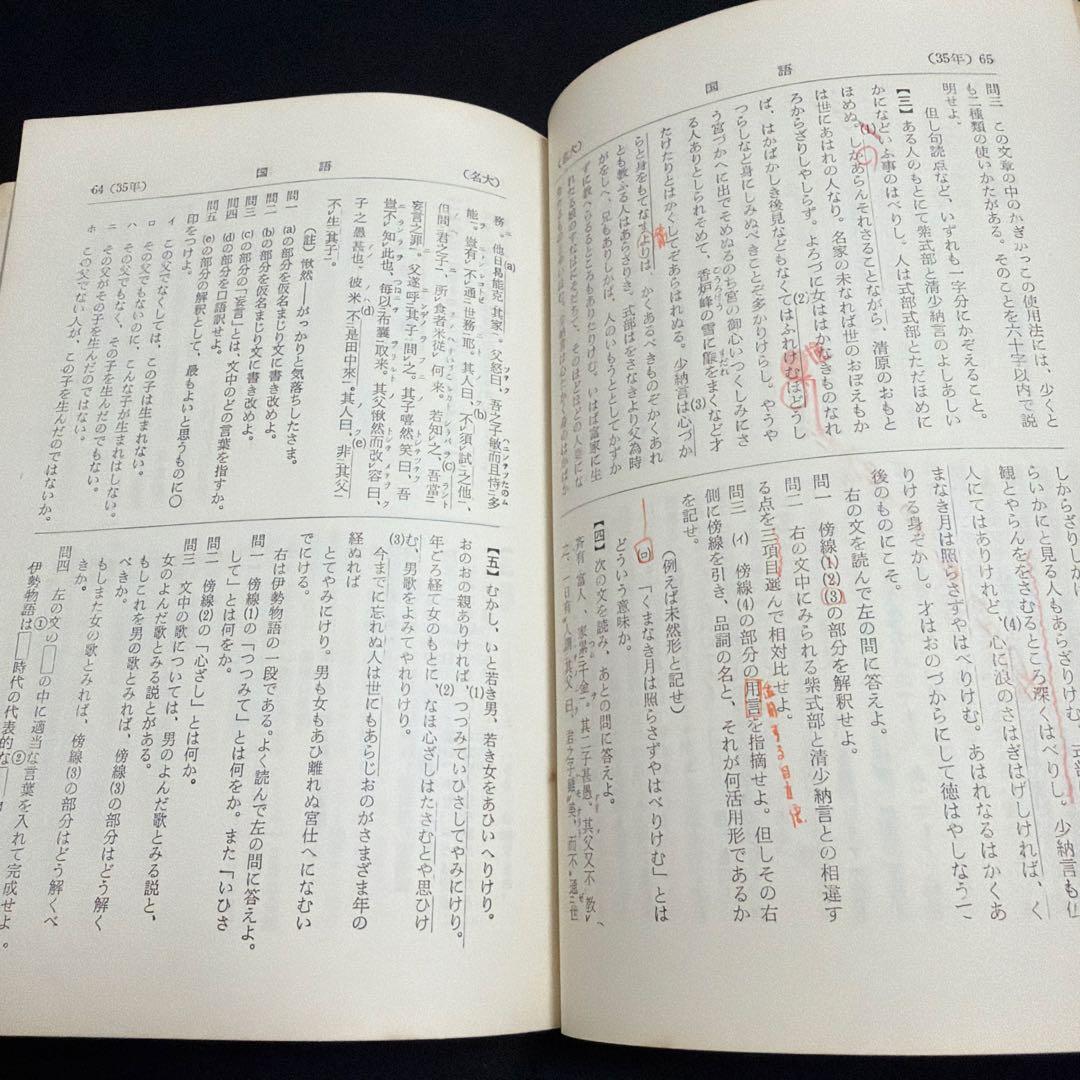 (35年) 65
国語
問三 この文章の中のかぎかっこの使用法には、少くと
も二種類の使いかたがある。そのことを六十字以内で説
明せよ。
但し句読点など、いずれも一字分にかぞえること。
【三】 ある人のもとにて紫式部と清少納言のよしあしい
かになどいふ事のはべりし。人は式部式部とただほめに
ほめぬ。(1)しかあらんそれさることながら、清原のおもと
は世にあはれの人なり。名家の未なれば世のおぼえもか
ろからざりしやしらず。よろづに女ははかなきものなれ
ば、はかばかしき後見などもなくては(2)ふれけむほどうし
つらしなど身にしみぬべきことぞ多かりけらし。やうや
う宮づかへに出でそめぬるのち宮の御心いつくしみにさ
る人ありとしられそめて、香炉峰の雪に簾をまくなど才
たけたりとはかくしてぞあらはれぬる。少納言は(3)心づか
らと身をもてなすよりは、かくあるべきものぞかくあれ
とも教ふる人はあらざりき。式部はをさなきより父為時
がをしへ、兄もありしかば、人のいもうとしてかずか
ずに教へらるるところもありたりけむ。いはば富家に生
(名大)
しかざらん
らいかに見る人もありけんを
観とやらんをさむるところ深くはべりし。少納言も仏
まなき月は照らさずやはべりけむ。
人にてはありけれど、(4)心に浪のさはぎはげしければ、く
りける身ぞかし。才はおのづからにして徳はやしなうて
後のものにこそ。
右の文を読んで左の問に答えよ。
問一 傍線(1)(2)(3)の部分を解釈せよ。
問二 右の文中にみられる紫式部と清少納言との相違す
る点を三項目選んで相対比せよ。
問三 (イ) 傍線(4)の部分の用言を指摘せよ。但しその右
側に傍線を引き、品詞の名と、それが何活用形であるか
を記せ。
(例えば未然形と記せ)
(ロ) 「くまなき月は照らさずやはべりけむ」とは
どういう意味か。
【四】 次の文を読み、あとの問に答えよ。
斉有富人、家累千金。其二子甚愚。其父又不教
之。一日有人謂其父曰、君之子雖美、而不通世
64 (35年)
国語
(名大)
務。他日曷能克(a)其家。父怒曰、吾之子敏而且恃多
能。豈有不通世務耶。其人曰、不須試之他、
但問君之子、所食者米従何来。(b)若知之、吾当
(c)妄言之罪。父遂呼其子問之。其子嘻然笑曰、吾
豈不知此也、毎以布囊取来。其父愀然而改容曰、
子之愚甚也。(d)彼米不是田中来。其人曰、(e)非其父
不生其子。
(註) 愀然──がっかりと気落ちしたさま。
問一 (a)の部分を仮名まじり文に書き改めよ。
問二 (b)の部分を仮名まじり文に書き改めよ。
問三 (c)の部分の「妄言」とは、文中のどの言葉を指すか。
問四 (d)の部分を口語訳せよ。
問五 (e)の部分の解釈として、最もよいと思うものに○
印をつけよ。
イ この父でなくしては、この子は生まれない。
ロ この父でもないのに、こんな子が生まれはしない。
ハ この父でもなく、その子を生んだのでもない。
ニ この父がその子を生んだのではない。
ホ この父でない人が、この子を生んだのではないか。
【五】 むかし、いと若き男、若き女をあひいへりけり。
おのおの親ありければ、(1)つつみていひさしてやみにけり。
年ごろ経て女のもとに、(2)なほ心ざしはたさむとや思ひけ
(3)む、男歌をよみてやれりけり。
今までに忘れぬ人は世にもあらじおのがさまざま年の
経ぬれば
とてやみにけり。男も女もあひ離れぬ宮仕へになむい
でにける。
右は伊勢物語の一段である。よく読んで左の問に答えよ。
問一 傍線(1)の「つつみて」とは何をか。また「いひさ
して」とは何をか。
問二 傍線(2)の「心ざし」とは何か。
問三 文中の歌については、男のよんだ歌とみる説と、
女のよんだ歌とみる説とがある。
もしこれを男の歌とみれば、傍線(3)の部分はどう解く
べきか。
もしまた女の歌とみれば、傍線(3)の部分はどう解くべ
きか。
問四 左の文の□の中に適当な言葉を入れて完成せよ。
伊勢物語は①□時代の代表的な②□